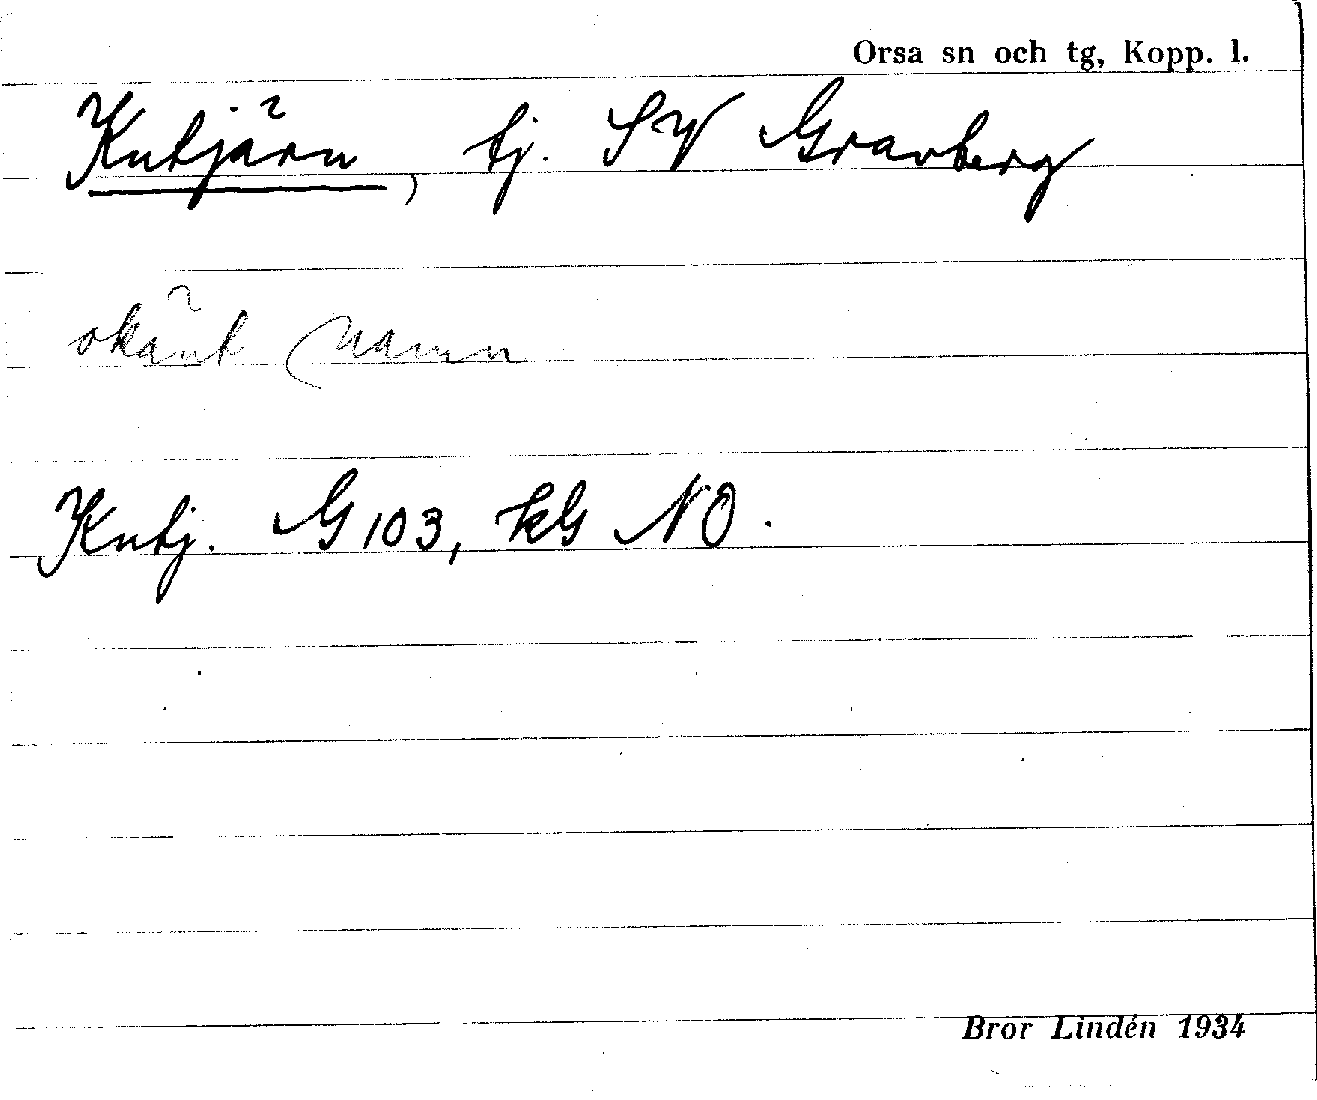 Orsa sn och tg, Kopp. l.
Kntjärn, tj. SV Gravberg
okänt namn
Kntj. G 103, kG NO.
Bror Lindén 1934